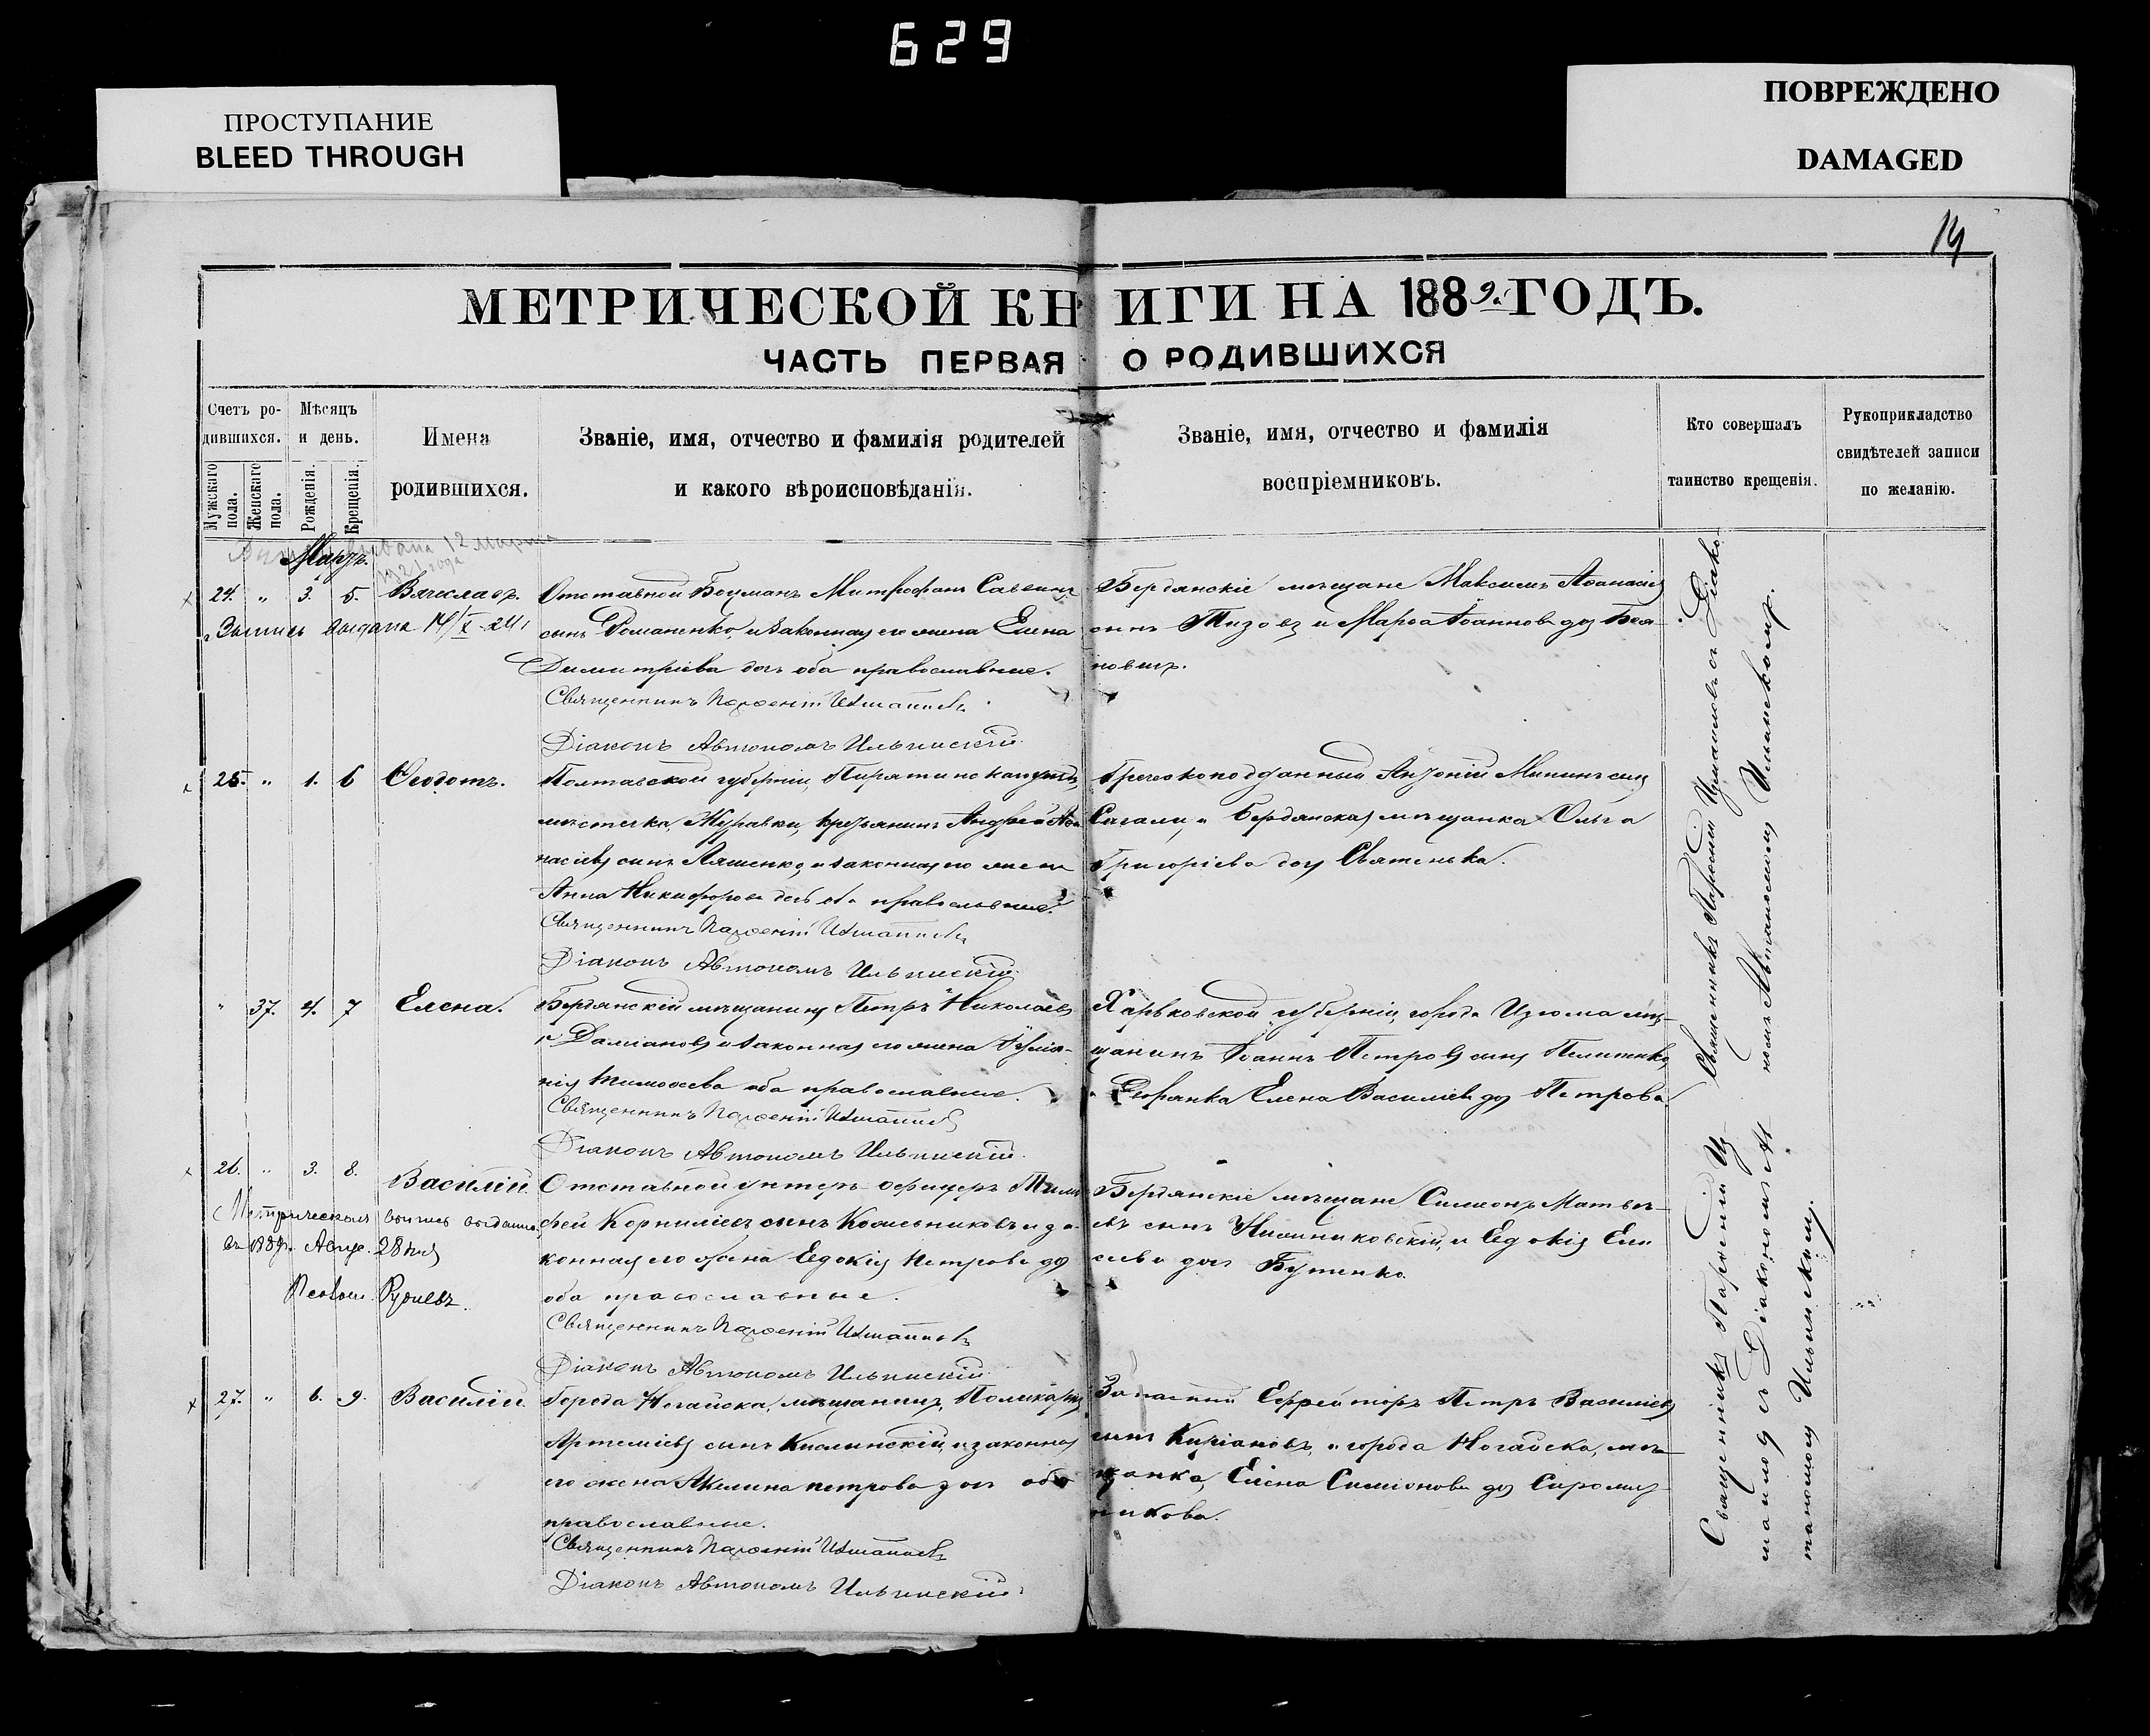 629
ПРОСТУПАНИЕ
BLEED THROUGH
ПОВРЕЖДЕНО
DAMAGED
14
МЕТРИЧЕСКОЙ КНИГИ НА 1889 ГОДЪ.
ЧАСТЬ ПЕРВАЯ О РОДИВШИХСЯ
Счетъ ро-
дившихся.
Мужскаго пола.
Женскаго пола.
Мѣсяцъ
и день.
Рожденія.
Крещенія.
Имена
родившихся.
Званіе, имя, отчество и фамилія родителей
и какого вѣроисповѣданія.
Званіе, имя, отчество и фамилія
воспріемниковъ.
Кто совершалъ
таинство крещенія.
Рукоприкладство
свидѣтелей записи
по желанію.
12 марта
1921 года
Мартъ.
24. " 3. 5. Вячеславъ.
выдана 14/X-24
Отставной Боцманъ Митрофанъ Саввинъ
сынъ Романенко, и законная его жена Елена
Димитріева дочь оба православные.
Священникъ Парѳеній
Діаконъ Автономъ Ильинскій
Бердянскіе мѣщане Максимъ Аѳанасіев
сынъ Тизовъ и Марѳа Іоаннова дочь
25. " 1. 6 Ѳеодотъ.
Полтавской губерніи, Пирятинскаго уѣзда,
мѣстечка, Журавки, крестьянинъ Андрей Аѳа
насіевъ сынъ Ляшенко, и законная его жена
Анна Никифорова дочь оба православные.
Священникъ Парѳеній
Діаконъ Автономъ Ильинскій
Греческоподданный Антоній Мининъ сынъ
и Бердянская мѣщанка Ольга
Григоріева дочь
" 37. 4. 7 Елена.
Бердянскій мѣщанинъ Петръ Николаевъ
Даміановъ и законная его жена
Тимоѳеева оба православные.
Священникъ Парѳеній
Діаконъ Автономъ Ильинскій
Харьковской губерніи, города Изюма мѣ-
щанинъ Іоаннъ Петровъ сынъ
Елена Василіева дочь Петрова
26. " 3. 8. Василій.
выпись выдана
въ 1889 г. 28 дня
Отставной унтеръ-офицеръ Тимо
ѳей Корниліевъ сынъ Кожевниковъ и за
конная его жена Евдокія Петрова дочь
оба православные.
Священникъ Парѳеній
Діаконъ Автономъ Ильинскій
Бердянскіе мѣщане Симеонъ Матвѣ-
евъ сынъ и Евдокія
дочь Бутенко.
27. " 6. 9. Василій.
Города Ногайска, мѣщанинъ, Поликарпъ
Артеміевъ сынъ Кислинскій, и законная
его жена Акилина Петрова дочь оба
православные.
Священникъ Парѳеній
Діаконъ Автономъ Ильинскій
Запасный Ефрейторъ Петръ Василіевъ
сынъ и города Ногайска, мѣ-
щанка, Елена Симеонова дочь
Священникъ Парѳеній съ Діако-
номъ Автономомъ Ильинскимъ.
Священникъ Парѳеній
съ Діакономъ Ав
тономомъ Ильинскимъ.